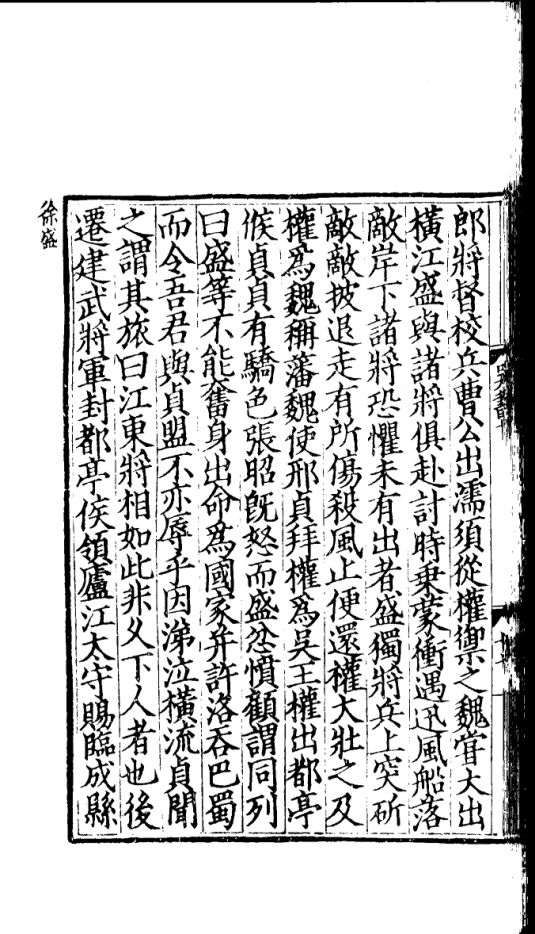 郎將督校兵曹公出濡須從權禦之魏甞大出
橫江盛與諸將俱赴討時乗蒙衝遇迅風船落
敵岸下諸將恐懼未有出者盛獨將兵上突斫
敵敵披退走有所傷殺風止便還權大壯之及
權爲魏稱藩魏使邢貞拜權爲吳王權出都亭
候貞貞有驕色張昭旣怒而盛忿憤顧謂同列
曰盛等不能奮身出命爲國家并許洛吞巴蜀
而令吾君與貞盟不亦辱乎因涕泣橫流貞聞
之謂其旅曰江東將相如此非久下人者也後
遷建武將軍封都亭侯領廬江太守賜臨成縣
徐盛